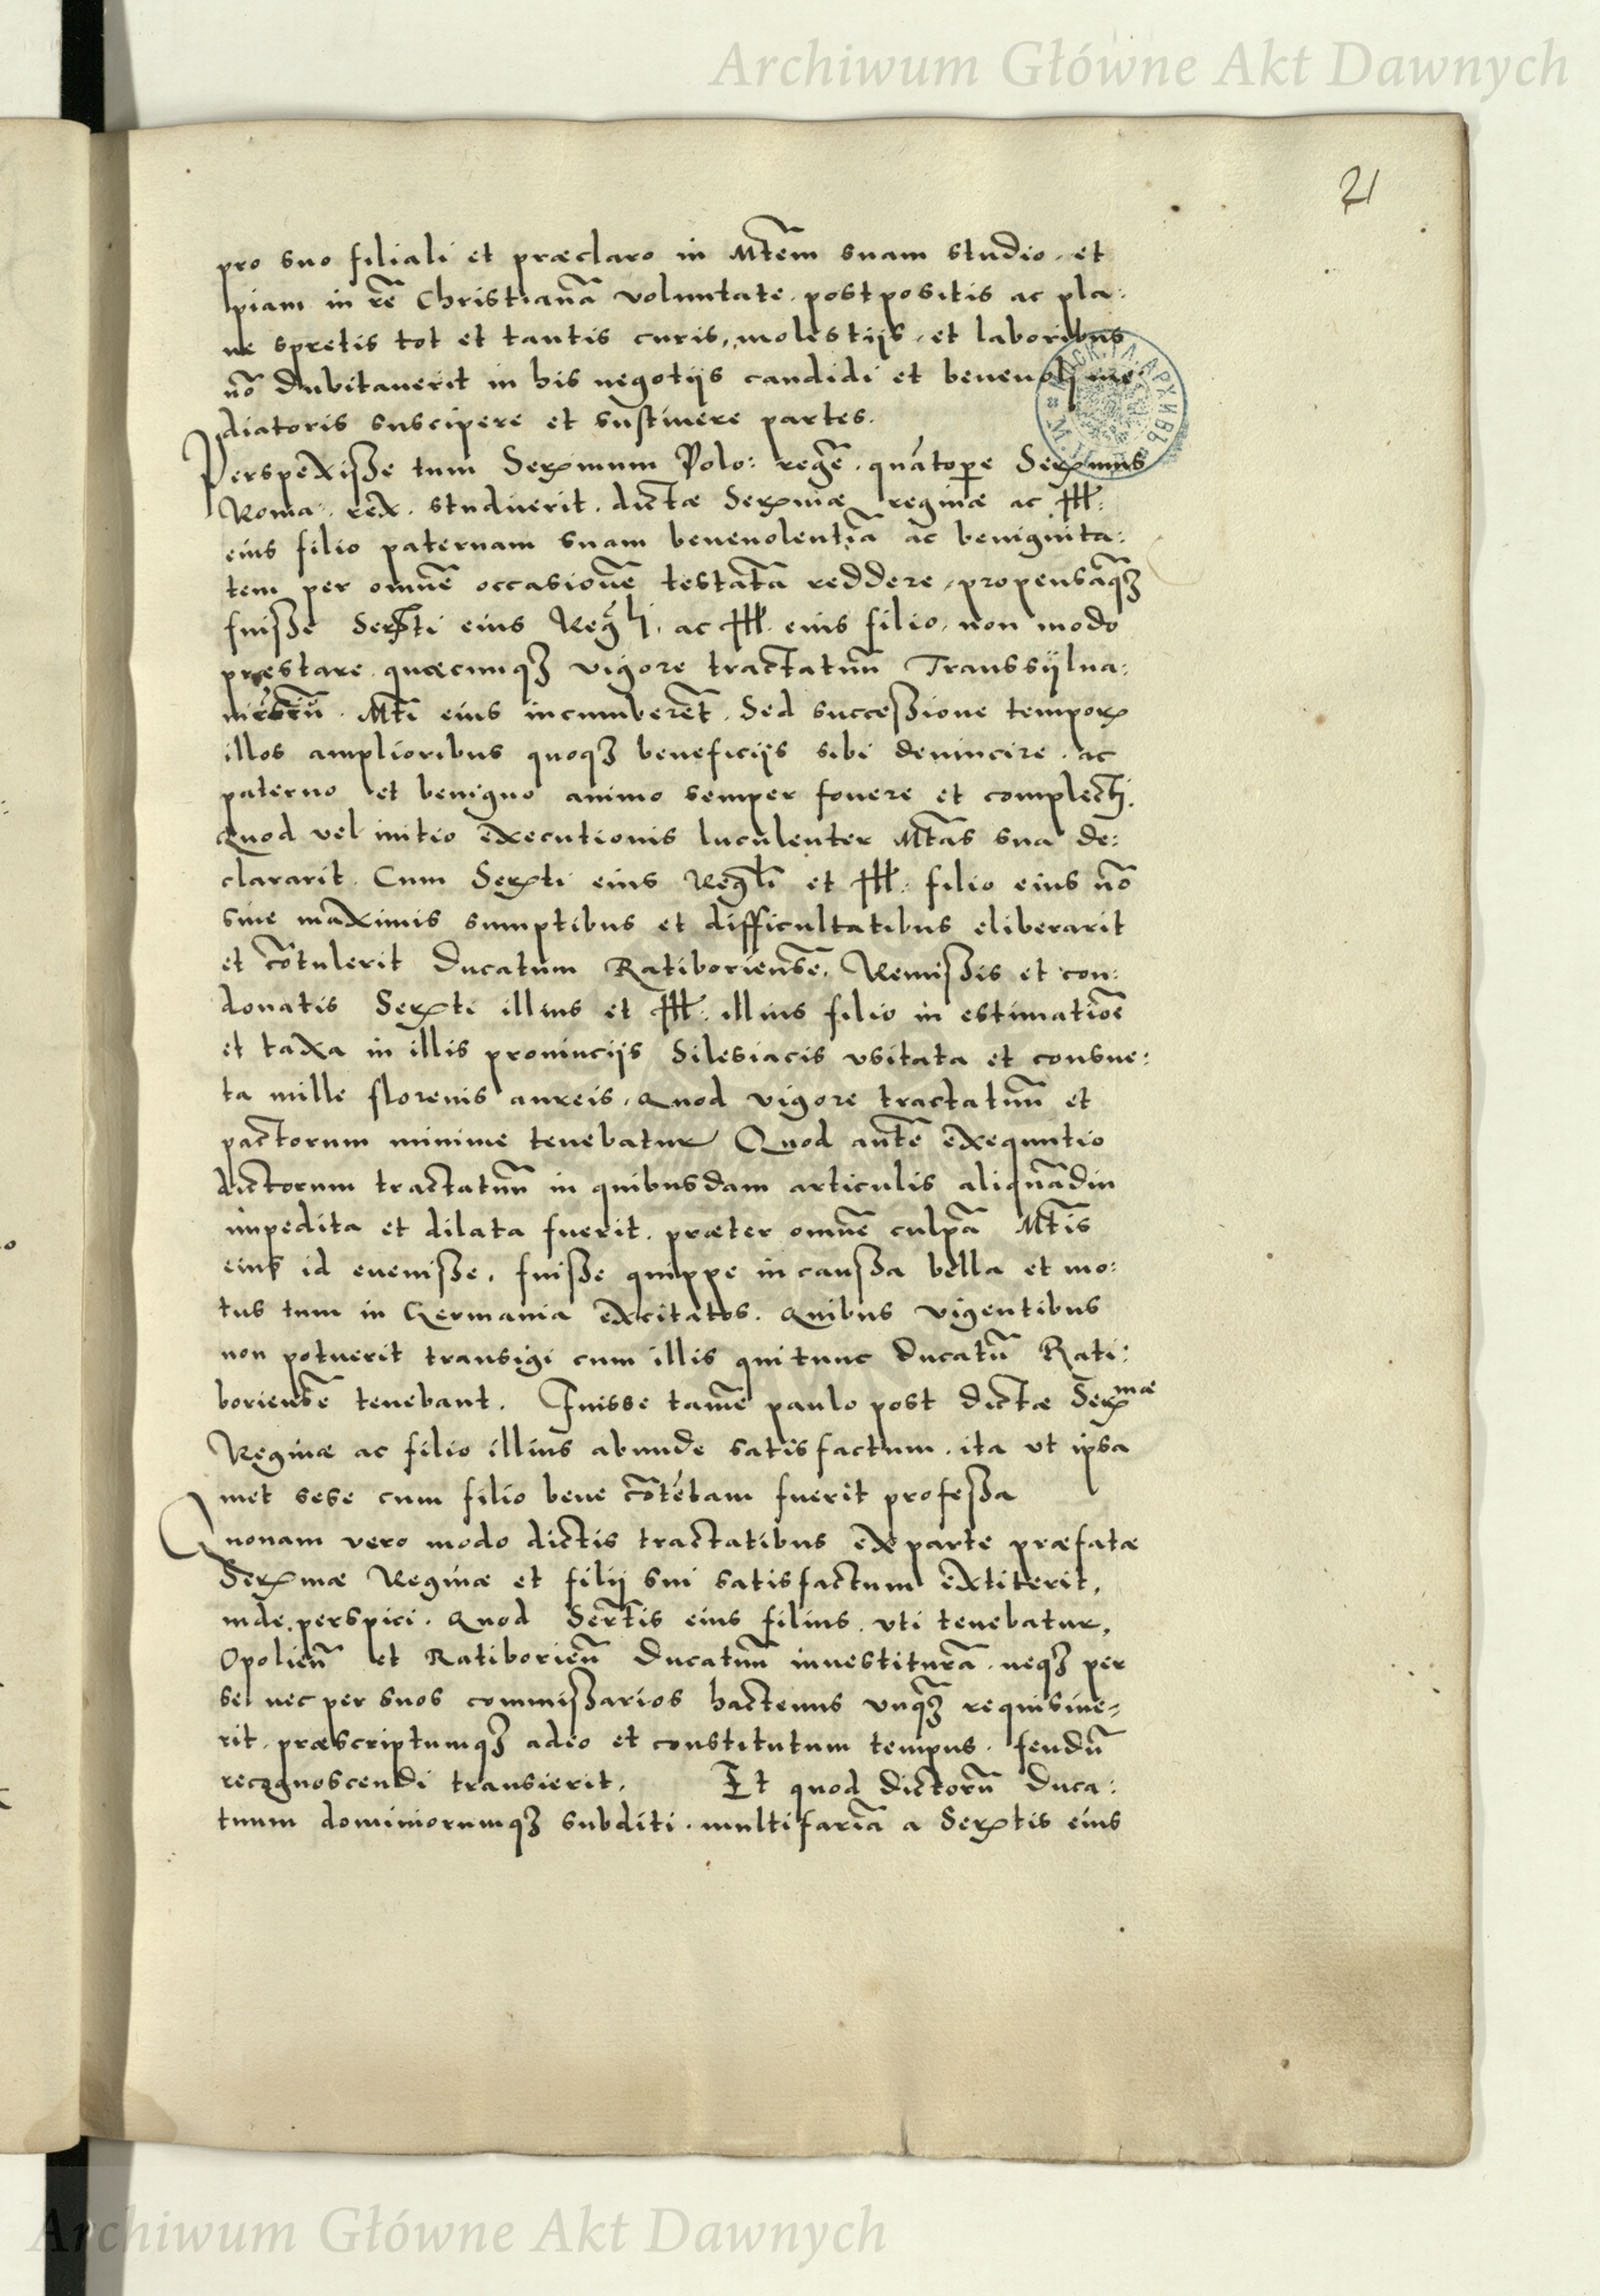 Archiwum Główne Akt Dawnych
21
pro suo filiali et præclaro in Mtēm suam studio, et
piam in rē Christianā voluntate, postpositis ac pla:
ne spretis tot et tantis curis, molestijs, et laboribus
nō dubitauerit in his negotijs candidi et beneuoli me
diatoris suscipere et sustinere partes.
Perspexisse tum Serenmum Polo: regē, quātopere Serenmus
Roma: rex, studuerit, dictæ Serenmæ reginæ ac Ill:
eius filio paternam suam beneuolentiā ac benignita:
tem per omnē occasionē testatā reddere, propensāqȝ
fuisse Serti eius Reg. ac Ill. eius filio, non modo
præstare quæcunqȝ vigore tractatuū Transsylua:
niēsiū Mti eius incumberēt, Sed successione tempor
illos amplioribus quoqȝ beneficijs sibi deuincire, ac
paterno et benigno animo semper fouere et complecti.
Quod vel initio executionis luculenter Mtas sua de:
clararit. Cum Serenti eius Regli et Ill: filio eius nō
sine maximis sumptibus et difficultatibus eliberarit
et cōtulerit Ducatum Ratiboriensē, Remissis et con:
donatis Serenti illius et Ill: illius filio in estimatiōe
et taxa in illis prouincijs Silesiacis vsitata et consue:
ta mille florenis aureis, Quod vigore tractatuū et
pactorum minime tenebatur Quod autē exequutio
dictorum tractatuū in quibusdam articulis aliquādiu
impedita et dilata fuerit, præter omnē culpā Mtis
eius id euenisse, fuisse quippe in caussa bella et mo:
tus tum in Germania excitatos. Quibus vigentibus
non potuerit transigi cum illis qui tunc Ducatū Rati:
boriensē tenebant. Fuisse tamē paulo post dictæ Serenmæ
Reginæ ac filio illius abunde satisfactum, ita vt ipsa
met sese cum filio bene cōtētam fuerit professa
Quonam vero modo dictis tractatibus ex parte præfatæ
Serenmæ Reginæ et filij sui satisfactum extiterit,
inde perspici. Quod Sertis eius filius, vti tenebatur,
Opolieñ et Ratiborieñ Ducatuū inuestiturā, neqȝ per
se nec per suos commissarios hactenus vnqȝ requisiue=
rit, præscriptumqȝ adeo et constitutum tempus, feudū
recognoscendi transierit. Et quod dictorū Duca:
tuum dominiorumqȝ subditi, multifariā a Serentis eius
Archiwum Główne Akt Dawnych